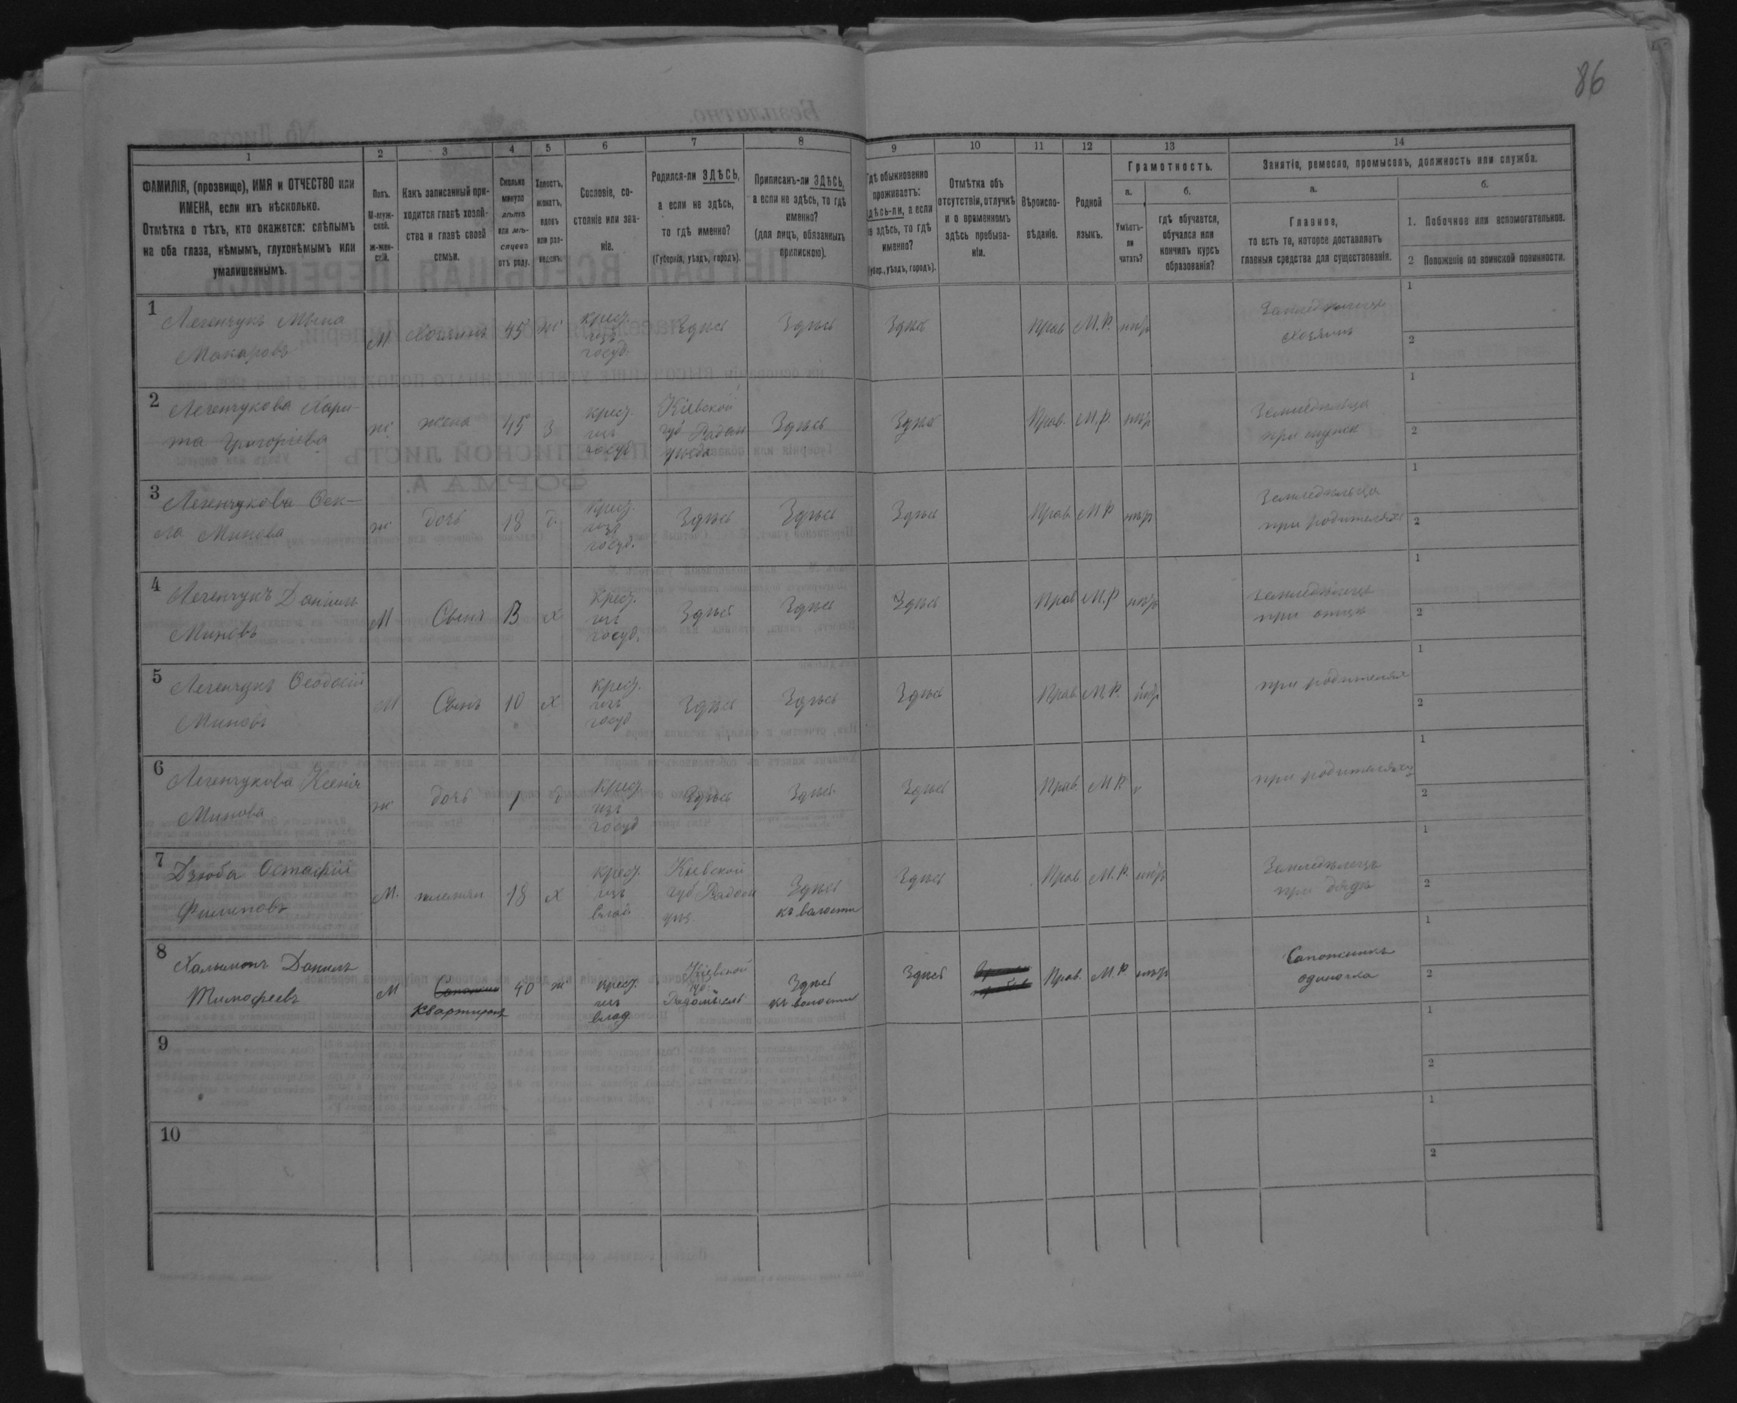 86
1 2 3 4 5 6 7 8 9 10 11 12 13 14
ФАМИЛІЯ, (прозвище), ИМЯ и ОТЧЕСТВО или
ИМЕНА, если ихъ нѣсколько.
Отмѣтка о тѣхъ, кто окажется: слѣпымъ
на оба глаза, нѣмымъ, глухонѣмымъ или
умалишеннымъ.
Полъ.
М-муж-
ской.
ж-жен-
скій.
Какъ записанный при-
ходится главѣ хозяй-
ства и главѣ своей
семьи.
Сколько
минуло
лѣтъ
или мѣ-
сяцевъ
отъ роду.
Холостъ,
женатъ,
вдовъ
или раз-
веденъ.
Сословіе, со-
стояніе или зва-
ніе.
Родился-ли ЗДѢСЬ,
а если не здѣсь,
то гдѣ именно?
(Губернія, уѣздъ, городъ).
Приписанъ-ли ЗДѢСЬ,
а если не здѣсь, то гдѣ
именно?
(для лицъ, обязанныхъ
припискою).
Гдѣ обыкновенно
проживаетъ:
здѣсь-ли, а если
не здѣсь, то гдѣ
именно?
(Губер., уѣздъ, городъ).
Отмѣтка объ
отсутствіи, отлучкѣ
и о временномъ
здѣсь пребыва-
ніи.
Вѣроиспо-
вѣданіе.
Родной
языкъ.
Грамотность.
а.
Умѣетъ-
ли
читать?
б.
гдѣ обучается,
обучался или
кончилъ курсъ
образованія?
Занятія, ремесло, промыселъ, должность или служба.
а.
Главное,
то есть то, которое доставляетъ
главныя средства для существованія.
б.
1. Побочное или вспомогательное.
2 Положеніе по воинской повинности.
1 Легенчукъ Мина М хозяинъ 45 ж крест. Здѣсь Здѣсь Здѣсь Прав М.Р. нѣтъ Земледѣлецъ 1
Макаровъ изъ госуд. хозяинъ 2
2 Легенчукова Хари- ж жена 45 З крест. Кіевской Здѣсь Здѣсь Прав. М.Р. нѣтъ Земледѣлица 1
та Григоріева изъ госуд губ Радом уѣзда при мужѣ 2
3 Легенчукова Фек- ж дочь 18 д крест. Здѣсь Здѣсь Здѣсь Прав М.Р нѣтъ Земледѣлица 1
ла Минова изъ госуд. при родителяхъ 2
4 Легенчукъ Даніилъ М Сынъ 13 х крест. Здѣсь Здѣсь Здѣсь Прав М.Р нѣтъ земледѣлецъ 1
Миновъ изъ госуд. при отцѣ 2
5 Легенчукъ Ѳеодосій М Сынъ 10 х крест. Здѣсь Здѣсь Здѣсь Прав М.Р. нѣтъ при родителяхъ 1
Миновъ изъ госуд 2
6 Легенчукова Ксенія ж дочь 1 д крест. Здѣсь Здѣсь Здѣсь Прав. М.Р. при родителяхъ 1
Минова изъ госуд 2
7 Дзюба Остафій М. племян 18 х крест. Кіевской Здѣсь Здѣсь Прав М.Р. нѣтъ Земледѣлецъ 1
Филиповъ изъ влад. губ Радом уѣз. къ волости при дядѣ 2
8 Халимонъ Даніилъ М 40 ж крест. Кіевской Здѣсь Здѣсь Прав. М.Р нѣтъ Сапожникъ 1
Тимофеевъ квартирантъ изъ влад губ. Радомысль къ волости одиночка 2
9 1
2
10 1
2